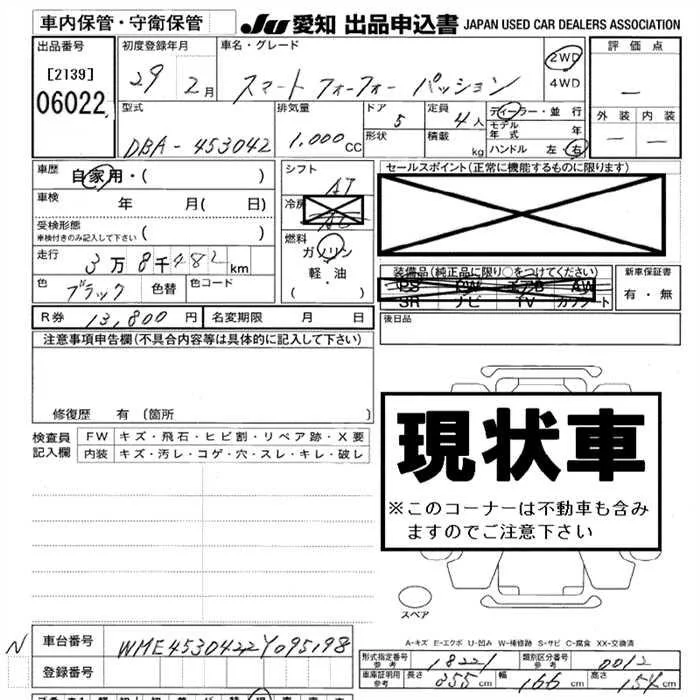 車内保管・守衛保管 JU 愛知 出品申込書 JAPAN USED CAR DEALERS ASSOCIATION
出品番号 初度登録年月 車名・グレード 2WD 評価点
[2139] 29 2月 スマートフォーフォー パッション 4WD ー
06022
型式 排気量 ドア 定員 ディーラー・並行 外装 内装
DBA-453042 1,000cc 5 4人 モデル年式 年 ー ー
形状 積載 kg ハンドル 左・右
車歴 自家用・( ) シフト AT セールスポイント(正常に機能するものに限ります)
車検 年 月( 日) 冷房 AC
受検形態 ( )
車検付きのみ記入して下さい
燃料 ガソリン
走行 3万8千482km 軽・油 装備品(純正品に限り○をつけてください) 新車保証書
・( ) PS PW エアB AW 有・無
色 ブラック 色替 色コード SR ナビ TV カワシート
R券 13,800円 名変期限 月 日 後日品
注意事項申告欄(不具合内容等は具体的に記入して下さい)
修復歴 有〔箇所 〕
現状車
※このコーナーは不動車も含み
ますのでご注意下さい
検査員 FW キズ・飛石・ヒビ割・リペア跡・X要
記入欄 内装 キズ・汚レ・コゲ・穴・スレ・キレ・破レ
スペア
A-キズ E-エクボ U-凹み W-補修跡 S-サビ C-腐食 XX-交換済
N 車台番号 WME4530422Y095198
登録番号
形式指定番号 参考 18221 類別区分番号 参考 0012
車庫証明用 参考 長さ 355cm 幅 166cm 高さ 154cm